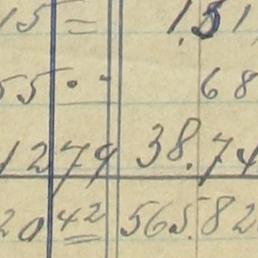 15 = 1.51
55 .. 68
1279 38.74
20 42 565.82